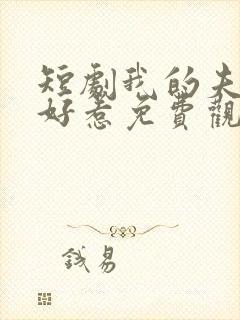 短劇我的夫
好惹免費觀
錢易